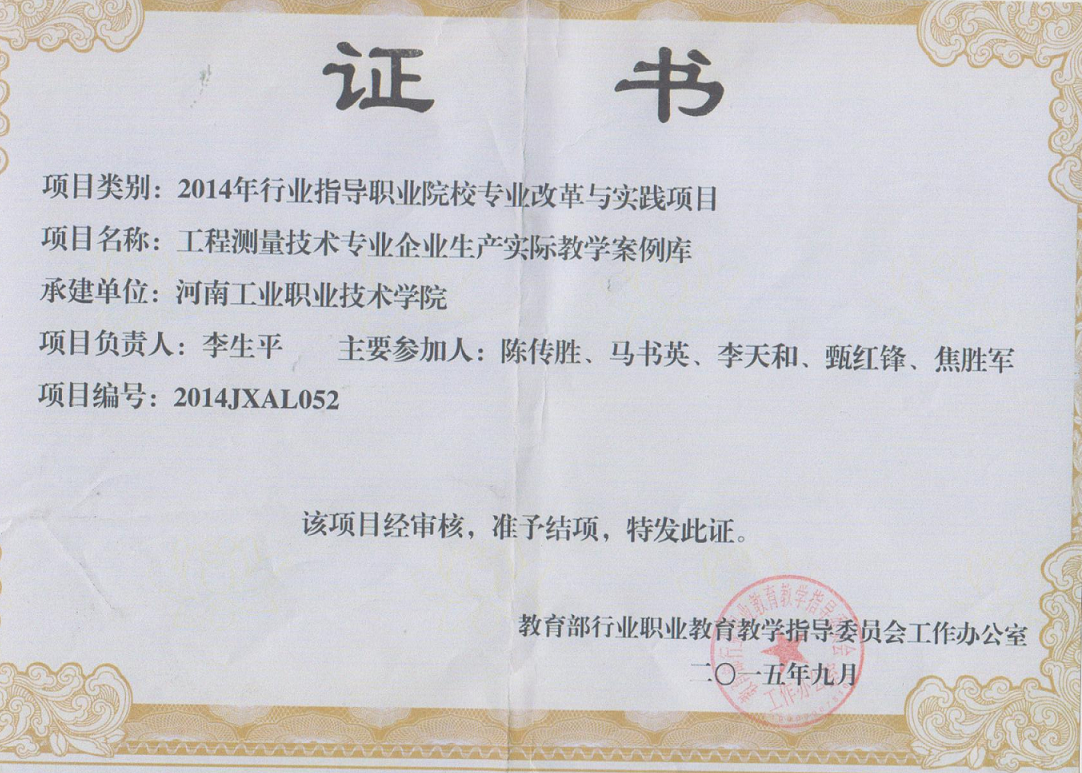 证 书
项目类别：2014年行业指导职业院校专业改革与实践项目
项目名称：工程测量技术专业企业生产实际教学案例库
承建单位：河南工业职业技术学院
项目负责人：李生平 主要参加人：陈传胜、马书英、李天和、甄红锋、焦胜军
项目编号：2014JXAL052
该项目经审核，准予结项，特发此证。
教育部行业职业教育教学指导委员会工作办公室
二〇一五年九月
工作办公室